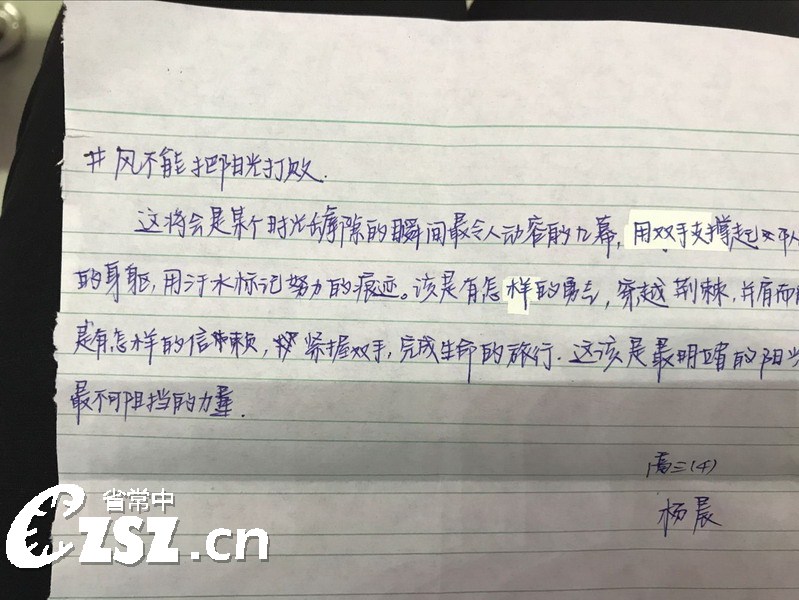 #风不能把阳光打败.
这将会是某个时光罅隙的瞬间最令人动容的九幕,用双手支撑起
的身躯,用汗水标记努力的痕迹。该是有怎样的勇气,穿越荆棘,并肩而
是有怎样的信赖,紧握双手,完成生命的旅行.这该是最明媚的阳光
最不可阻挡的力量.
高三(4)
杨晨
省常中
CZSZ.cn